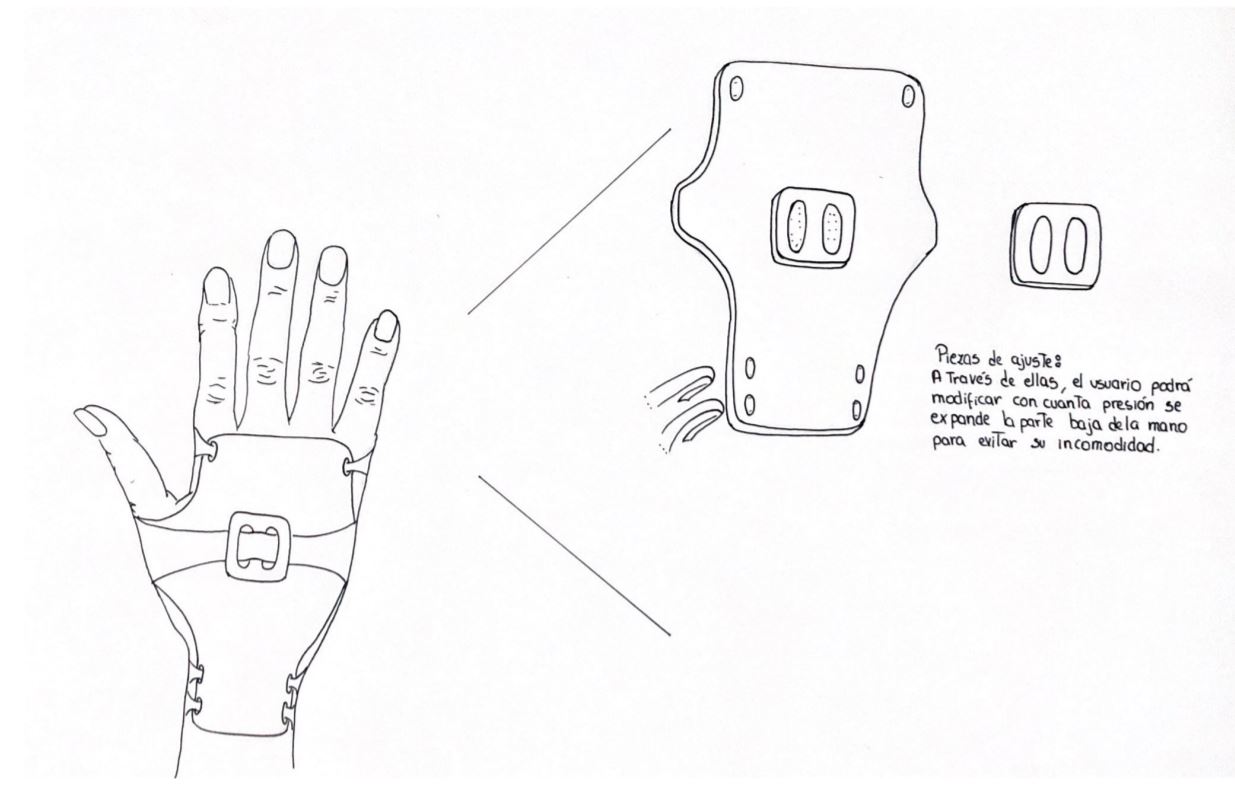 Piezas de ajuste:
A través de ellas, el usuario podrá
modificar con cuanta presión se
expande la parte baja de la mano
para evitar su incomodidad.